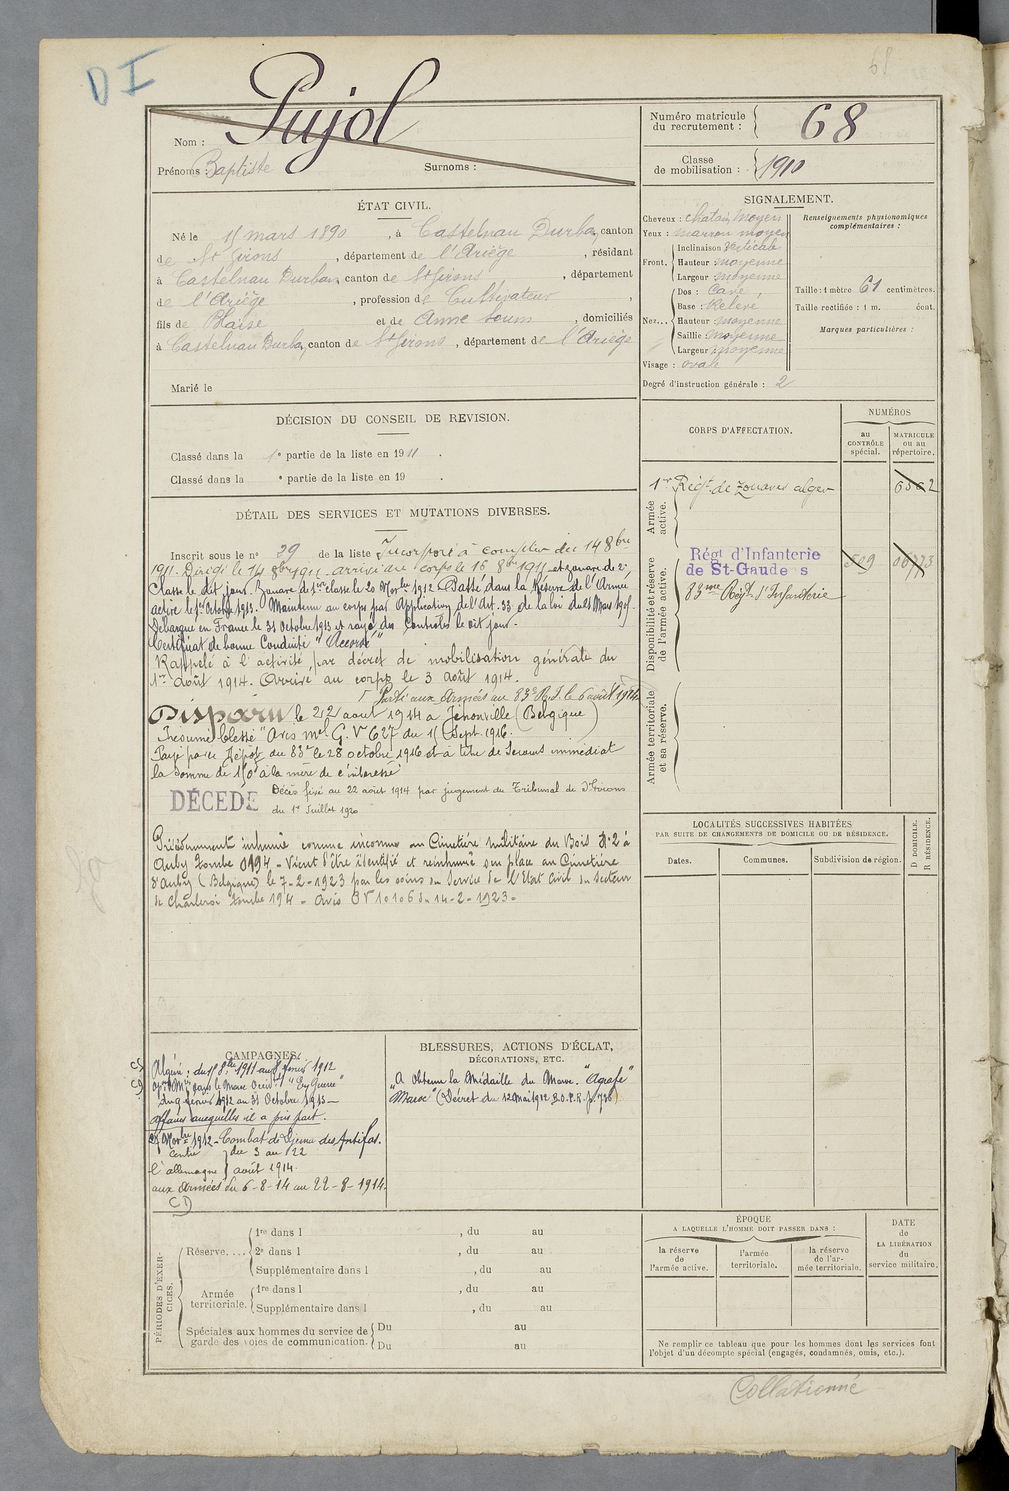 68
D I
Pujol
Nom :
Prénoms : Baptiste Surnoms :
Numéro matricule
du recrutement : 68
Classe
de mobilisation : 1910
ÉTAT CIVIL.
Né le 15 mars 1890, à Castelnau Durban, canton
de St Girons, département de l'Ariège, résidant
à Castelnau Durban, canton de St Girons, département
de l'Ariège, profession de Cultivateur,
fils de Blaise et de Anne Soum, domiciliés
à Castelnau Durban, canton de St Girons, département de l'Ariège
Marié le
SIGNALEMENT.
Cheveux : chatain moyen
Yeux : marron moyen
Front. Inclinaison verticale
Hauteur moyenne
Largeur moyenne
Nez... Dos : Cave
Base : Relevé
Hauteur moyenne
Saillie moyenne
Largeur moyenne
Visage : ovale
Renseignements physionomiques
complémentaires :
Taille : 1 mètre 61 centimètres.
Taille rectifiée : 1 m. cent.
Marques particulières :
Degré d'instruction générale : 2
DÉCISION DU CONSEIL DE REVISION.
Classé dans la 1e partie de la liste en 1911.
Classé dans la e partie de la liste en 19 .
DÉTAIL DES SERVICES ET MUTATIONS DIVERSES.
Inscrit sous le n° 29 de la liste Incorporé à compter du 14 8bre
1911. Dirigé le 14 8bre 1911 arrivé au corps le 16 8bre 1911 et zouave de 2e
Classe le dit jour. Zouave de 1ère classe le 20 Novbre 1912. Passé dans la Réserve de l'Armée
active le 1er Octobre 1913. Maintenu au corps par Application de l'Art. 33 de la loi du 21 Mars 1905.
Débarqué en France le 31 Octobre 1913 et rayé des Contrôles le dit jour.
Certificat de bonne Conduite "Accordé"
Rappelé à l'activité par décret de mobilisation générale du
1er août 1914. Arrivé au corps le 3 août 1914.
Parti aux Armées au 83e R.I. le 6 août 1914
Disparu le 22 aout 1914 à Jéhonville (Belgique)
Présumé blessé "Avis mel G. V 627 du 15 Sept. 1916.
Payé par le Dépôt du 83e le 28 octobre 1916 et à titre de secours immédiat
la somme de 150f à la mère de l'intéressé
DÉCÉDÉ Décès fixé au 22 août 1914 par jugement du Tribunal de St Girons
du 1er Juillet 1920
Précédemment inhumé comme inconnu au Cimetière militaire du Bois N°2 à
Auby tombe 0194 - Vient d'être identifié et réinhumé sur place au Cimetière
d'Auby (Belgique) le 7-2-1923 par les soins du Service de l'Etat Civil du Secteur
de Charleroi tombe 194 - avis OV 10106 du 14-2-1923 -
CORPS D'AFFECTATION.
NUMÉROS
au
CONTRÔLE
spécial.
MATRICULE
ou au
répertoire.
Armée
active.
1er Régt. de zouaves alger
Disponibilité et réserve
de l'armée active.
Régt d'Infanterie
de St-Gaudens
83me Régt. d'Infanterie
Armée territoriale
et sa réserve.
LOCALITÉS SUCCESSIVES HABITÉES
PAR SUITE DE CHANGEMENTS DE DOMICILE OU DE RÉSIDENCE.
Dates.
Communes.
Subdivision de région.
D DOMICILE.
R RÉSIDENCE.
CAMPAGNES.
Algérie : du 15 8bre 1911 au 8 février 1912
"En Guerre"
du 9 février 1912 au 31 Octobre 1913 -
affaires auxquelles il a pris part.
Novbre 1912 - Combat de Djema des Antifas.
Contre
l'allemagne
du 3 au 22
août 1914.
aux Armées du 6-8-14 au 22-8-1914.
CD
BLESSURES, ACTIONS D'ÉCLAT,
DÉCORATIONS, ETC.
"A Obtenu la Médaille du Maroc. "Agrafe"
Maroc (Décret du 12 Mai 1912 B.O.P.R. p. 738)
PÉRIODES D'EXERCICES.
Réserve.... 1re dans l , du au
2e dans l , du au
Supplémentaire dans l , du au
Armée
territoriale. 1re dans l , du au
Supplémentaire dans l , du au
Spéciales aux hommes du service de
garde des voies de communication. Du au
Du au
ÉPOQUE
A LAQUELLE L'HOMME DOIT PASSER DANS :
la réserve
de
l'armée active.
l'armée
territoriale.
la réserve
de l'ar-
mée territoriale.
DATE
de
LA LIBÉRATION
du
service militaire.
Ne remplir ce tableau que pour les hommes dont les services font
l'objet d'un décompte spécial (engagés, condamnés, omis, etc.).
Collationné